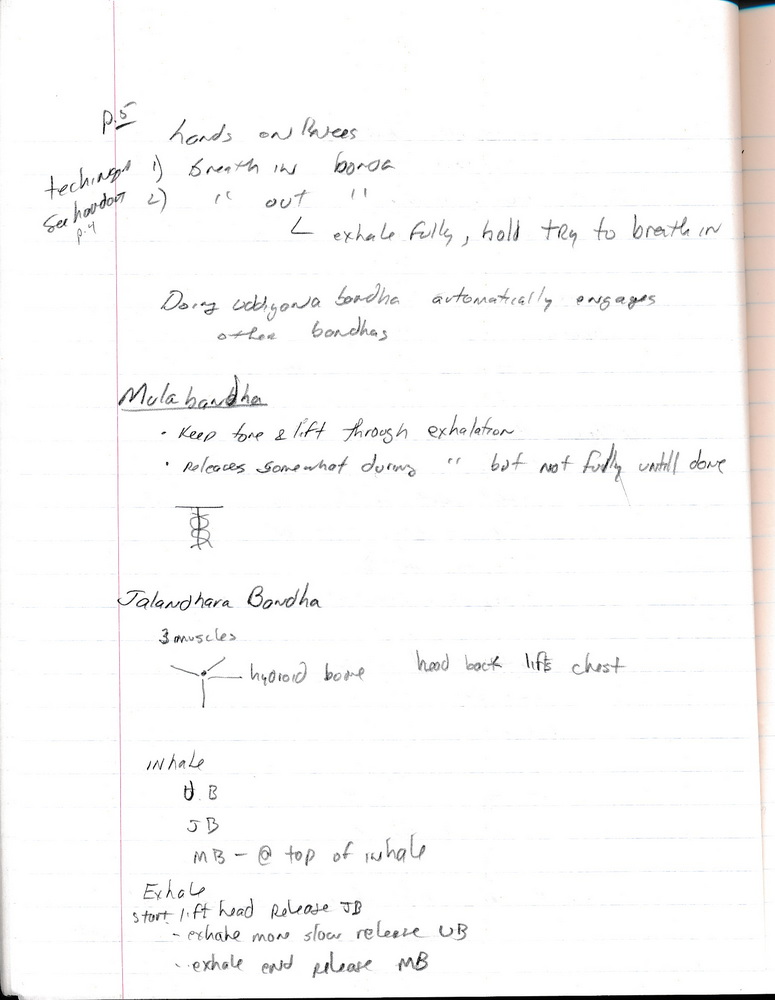 p.5
hands on knees
teching 1) Breath in bonda
See handout 2) " out "
p.4
exhale fully, hold try to breath in
Doing uddiyona bondha automatically engages
other bondhas
Mula bandha
· Keep tone & lift through exhalation
· Releaces somewhat during " but not fully untill done
Jalandhara Bondha
3 muscles
hydroid bone head back lifts chest
inhale
U B
J B
MB - @ top of inhale
Exhale
start lift head Release JB
- exhake more slow release UB
- exhale end release MB